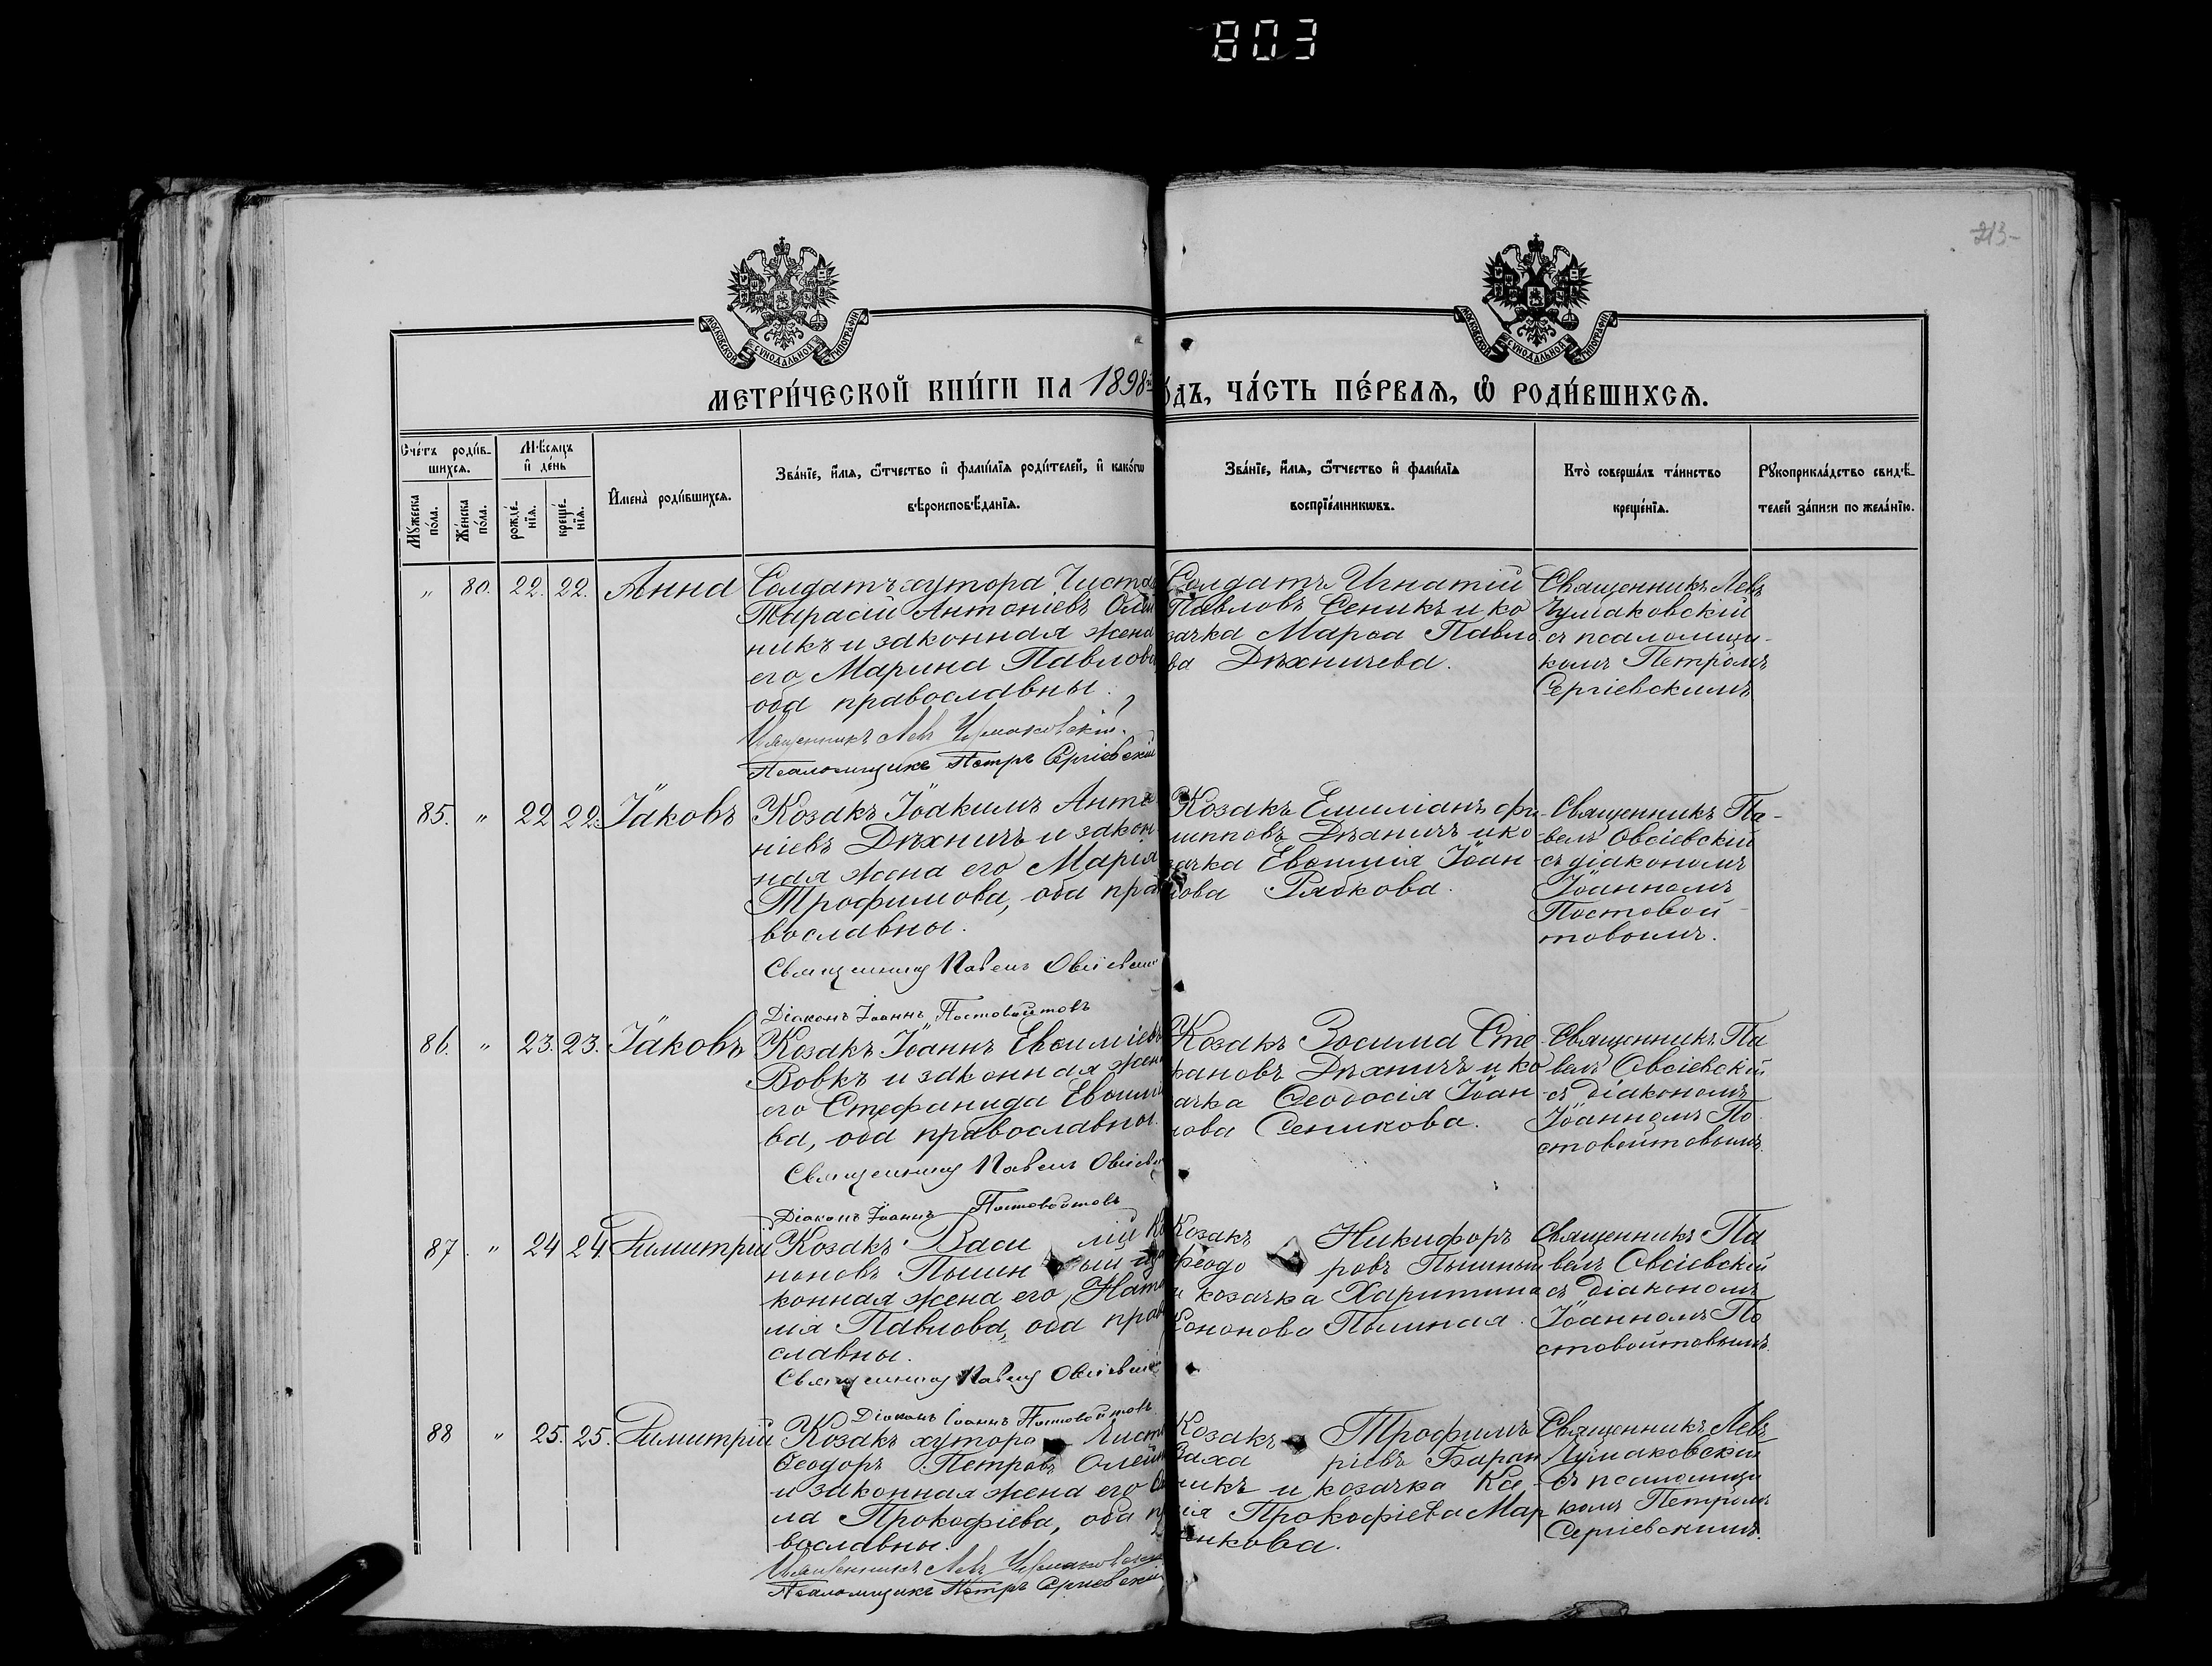 803
213
МОСКОВСКОЙ СУНОДАЛЬНОЙ ТИПОГРАФІИ
МОСКОВСКОЙ СУНОДАЛЬНОЙ ТИПОГРАФІИ
МЕТРИ́ЧЕСКОЙ КНИ́ГИ НА 1898й ГО́ДЪ, ЧА́СТЬ ПЕ́РВАѦ, Ѽ РОДИ́ВШИХСѦ.
Сче́тъ роди́в-
шихсѧ.
Мꙋ́жеска по́ла.
Же́нска по́ла.
Мѣ́сѧцъ и҆ де́нь
рожде́-нїѧ.
креще́-нїѧ.
И҆мена̀ роди́вшихсѧ.
Зва́нїе, и҆́мѧ, ѻ҆́тчество и҆ фами́лїѧ роди́телей, и҆ како́гѡ
вѣроисповѣ́данїѧ.
Зва́нїе, и҆́мѧ, ѻ҆́тчество и҆ фами́лїѧ
воспрїе́мникѡвъ.
Кто̀ соверша́лъ та́инство
креще́нїѧ.
Рꙋкоприкла́дство свидѣ́-
телей за́писи по жела́нїю.
" 80. 22. 22. Анна
Солдатъ хутора Чиста
Тарасій Антоніевъ Олій
никъ и законная жена
его Марина Павлова
оба православны.
Священникъ Левъ Чумаковскій.
Псаломщикъ Петръ Сергіевскій
Солдатъ Игнатій
Павловъ Сеникъ и ко
зачка Марѳа Павло
ва Дѣхничева.
Священникъ Левъ
Чумаковскій
съ псаломщи-
комъ Петромъ
Сергіевскимъ
85. " 22 22. Іаковъ
Козакъ Іоакимъ Анто
ніевъ Дѣхничъ и закон
ная жена его Марія
Трофимова, оба пра
вославны.
Священникъ Павелъ Овсіевскій
Діаконъ Іоаннъ Постовойтовъ
Козакъ Емиліанъ Фи
липповъ Дѣхничъ и ко
зачка Евѳимія Іоан
нова Рябкова.
Священникъ Па-
велъ Овсіевскій
съ діакономъ
Іоанномъ
Постовой-
товымъ.
86. " 23. 23. Іаковъ
Козакъ Іоаннъ Евѳиміевъ
Вовкъ и законная жена
его Стефанида Евѳимо
ва, оба православны.
Священникъ Павелъ Овсіевскій
Діаконъ Іоаннъ Постовойтовъ
Козакъ Зосима Сте
фановъ Дѣхничъ и ко
зачка Ѳеодосія Іоан
нова Сеникова.
Священникъ Па
велъ Овсіевскій
съ діакономъ
Іоанномъ По
стовойтовымъ.
87. " 24 24. Димитрій
Козакъ Васи лій Ко
ноновъ Пышн ый и за
конная жена его Ната
лія Павлова, оба право
славны.
Священникъ Павелъ Овсіевскій
Діаконъ Іоаннъ Постовойтовъ
Козакъ Никифоръ
Феодо ровъ Пышный
и козачка Харитина
Кононова Пышная.
Священникъ Па
велъ Овсіевскій
съ діакономъ
Іоанномъ По
стовойтовымъ.
88 " 25. 25. Димитрій
Козакъ хутора Чиста
Ѳеодоръ Петровъ Олейн
и законная жена его
ла Прокофіева, оба пра
вославны.
Священникъ Левъ Чумаковскій
Псаломщикъ Петръ Сергіевскій
Козакъ Трофимъ
Заха ріевъ Баран
никъ и козачка Ксе
нія Прокофіева Мар
ченкова.
Священникъ Левъ
Чумаковскій
съ псаломщи
комъ Петромъ
Сергіевскимъ.